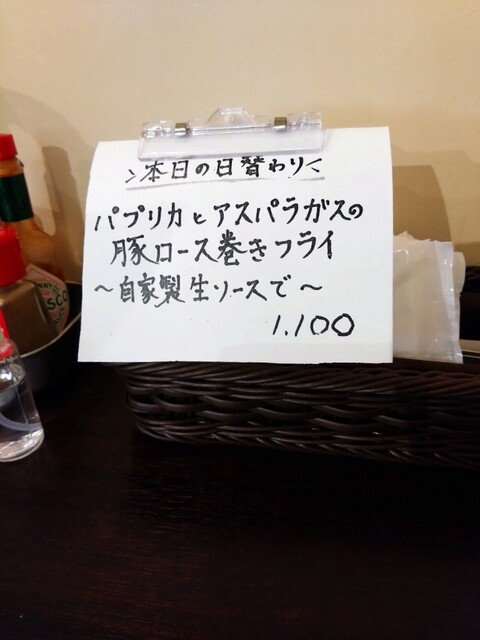 ＞本日の日替わり＜
パプリカとアスパラガスの
豚ロース巻きフライ
～自家製生ソースで～
1.100